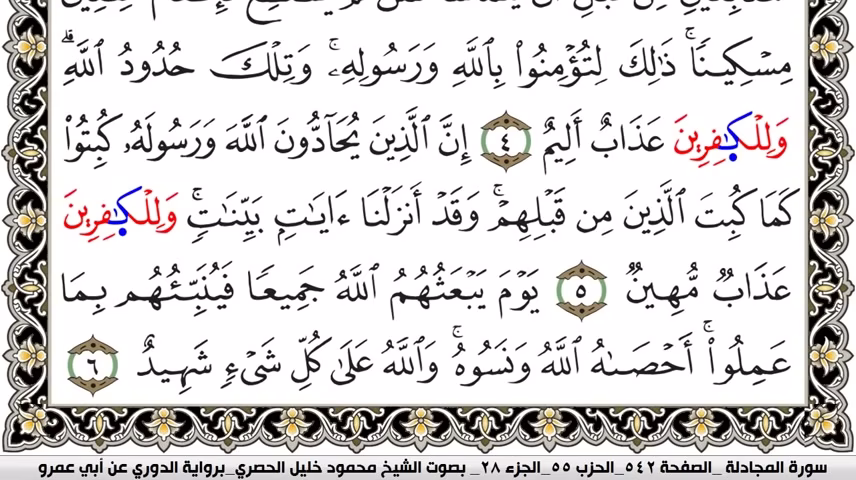 مِسۡكِينٗاۚ ذَٰلِكَ لِتُؤۡمِنُواْ بِٱللَّهِ وَرَسُولِهِۦۚ وَتِلۡكَ حُدُودُ ٱللَّهِۗ
وَلِلۡكَٰفِرِينَ عَذَابٌ أَلِيمٌ ٤ إِنَّ ٱلَّذِينَ يُحَآدُّونَ ٱللَّهَ وَرَسُولَهُۥ كُبِتُواْ
كَمَا كُبِتَ ٱلَّذِينَ مِن قَبۡلِهِمۡۚ وَقَدۡ أَنزَلۡنَا ءَايَٰتِۭ بَيِّنَٰتٖۚ وَلِلۡكَٰفِرِينَ
عَذَابٞ مُّهِينٞ ٥ يَوۡمَ يَبۡعَثُهُمُ ٱللَّهُ جَمِيعٗا فَيُنَبِّئُهُم بِمَا
عَمِلُوٓاْۚ أَحۡصَىٰهُ ٱللَّهُ وَنَسُوهُۚ وَٱللَّهُ عَلَىٰ كُلِّ شَيۡءٖ شَهِيدٌ ٦
سورة المجادلة _الصفحة ٥٤٢_الحزب ٥٥_الجزء ٢٨_ بصوت الشيخ محمود خليل الحصري_برواية الدوري عن أبي عمرو